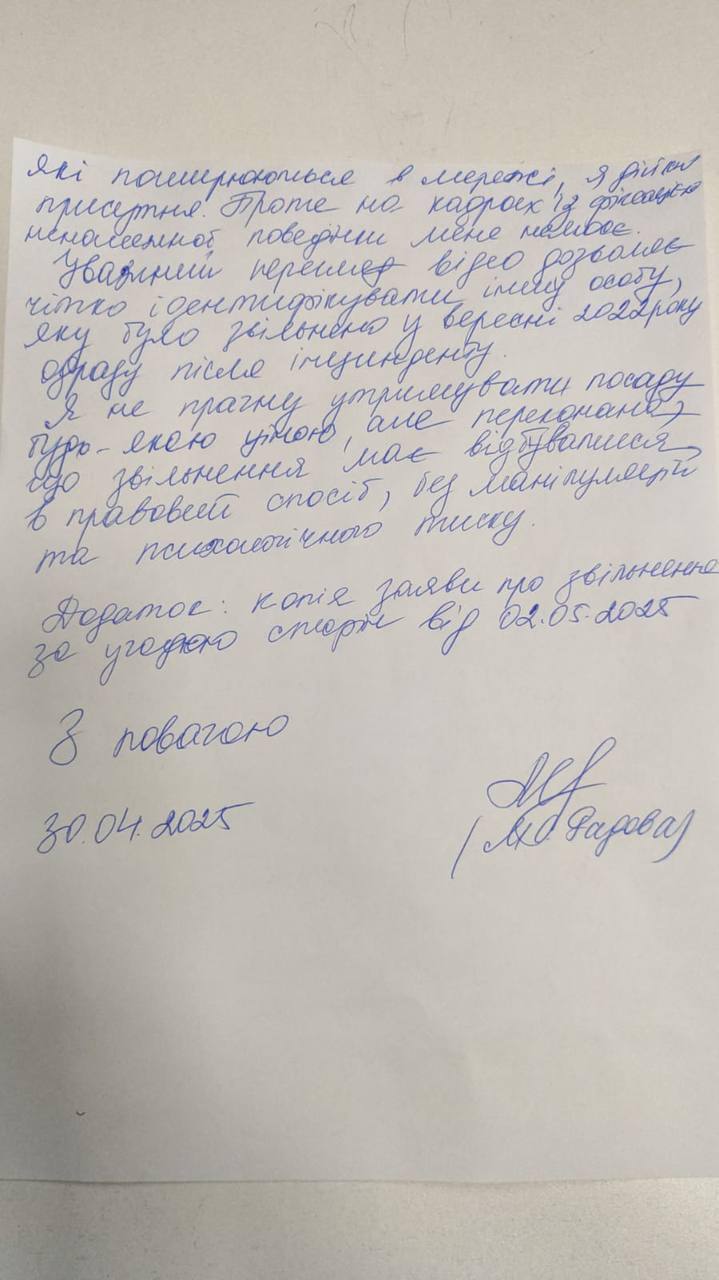 які поширюються в мережі, я дійсно
присутня. Проте на кадрах із фіксацією
неналежної поведінки мене немає.
Уважний перегляд відео дозволяє
чітко ідентифікувати іншу особу,
яку було звільнено у вересні 2022 року
одразу після інциденту.
Я не прагну утримувати посаду
будь-якою ціною, але переконана,
що звільнення має відбуватися
в правовий спосіб, без маніпуляцій
та психологічного тиску.
Додаток: копія заяви про звільнення
за угодою сторін від 02.05.2025
З повагою
30.04.2025